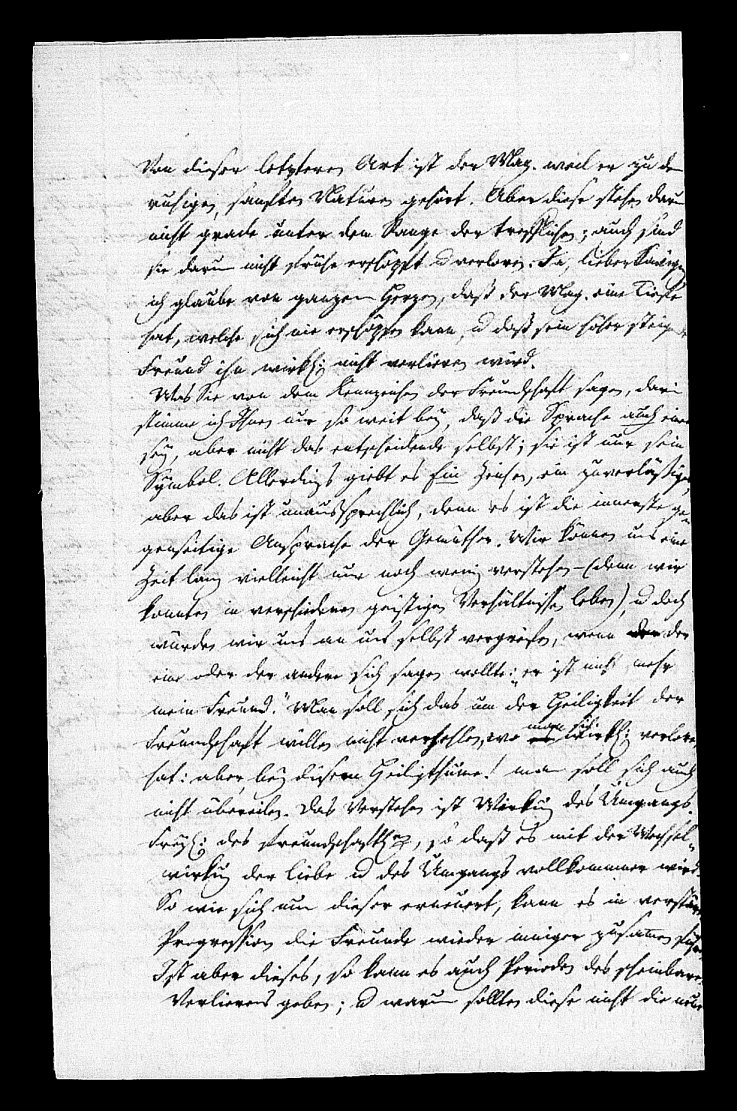 Von dieser letzteren Art ist der Mag. weil er zu den
ruhigen, sanften Naturen gehört. Aber diese stehen darum
nicht grade unter dem Range der trefflichen; auch sind
sie darum nicht frühe erschöpft u verloren. Ja, lieber
ich glaube von ganzem Herzen, daß der Mag. eine Tiefe
hat, welche sich nie erschöpfen kann, u daß sein höher steigen
Freund ihn wirkl: nicht verlieren wird.
Was Sie von dem Kennzeichen der Freundschaft sagen, darin
stimme ich Ihnen nur so weit bey, daß die Sprache auch eines
sey, aber nicht das entscheidende selbst; sie ist nur sein
Symbol. Allerdings giebt es Ein Zeichen, ein zuverlässiges,
aber das ist unaussprechlich, denn es ist die innerste ge
genseitige Ansprache der Gemüther. Wir können uns eine
Zeit lang vielleicht nur noch wenig verstehen – (denn wir
könnten in verschiedenen geistigen Verhältnissen leben), u doch
würden wir uns an uns selbst vergreifen, wenn der
eine oder der andere sich sagen wollte: „er ist nicht mehr
mein Freund." Man soll sich das um der Heiligkeit der
Freundschaft willen nicht verhehlen, wo man sich wirkl: verloren
hat: aber, bey diesem Heiligthume! man soll sich auch
nicht übereilen. Das Verstehen ist Wirkung des Umgangs,
des freundschaftl, so daß es mit der Wechsel-
wirkung der Liebe u des Umgangs vollkommner wird.
So wie sich nun dieser erneuert, kann es in
Progression die Freunde wieder inniger zusammen
Ist aber dieses, so kann es auch Perioden des scheinbaren
Verlierens geben; u warum sollten diese nicht die